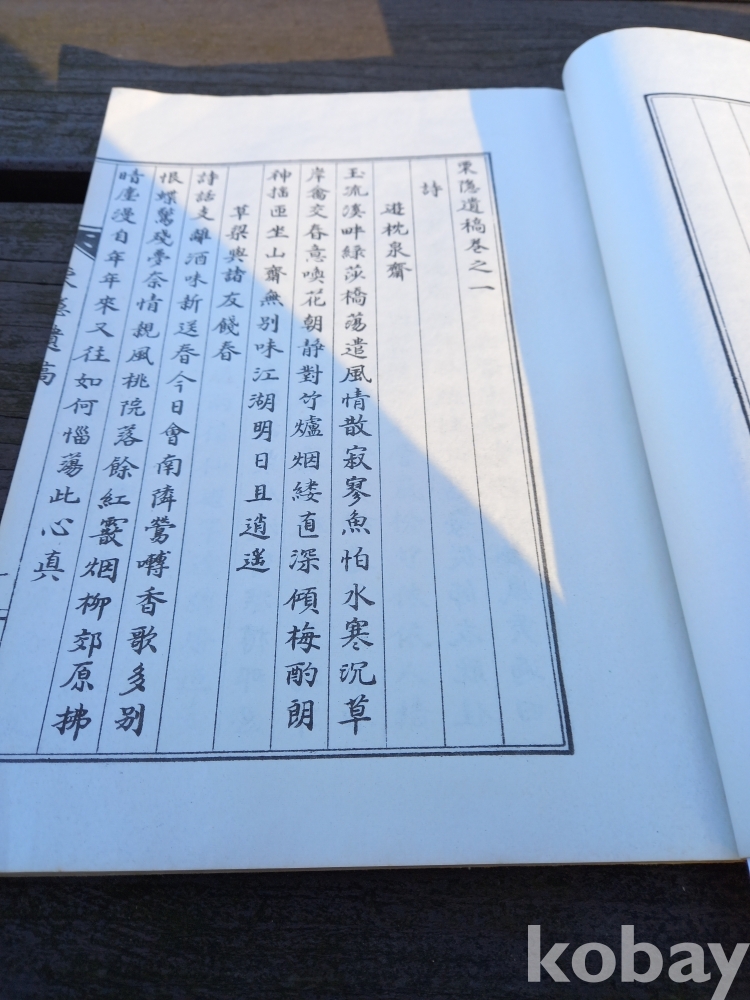 栗隱遺稿卷之一
詩
遊枕泉齋
玉流溪畔綠莎橋蕩遣風情散寂寥魚怕水寒沉草
岸禽交春意喚花朝靜對竹爐烟縷直深傾梅酌朗
神搖匝坐山齋無別味江湖明日且逍遙
草梁與諸友餞春
詩話支離酒味新送春今日會南隣鶯囀香歌多別
恨蝶驚殘夢奈情親風桃院落餘紅霰烟柳郊原拂
暗塵漫自年年來又往如何惱蕩此心真
隱遺稿
kobay